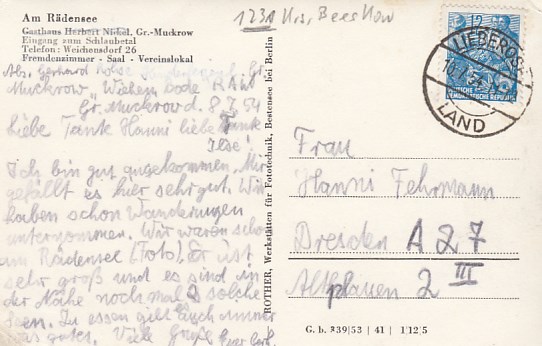 Am Rädensee
Gasthaus Herbert Nickel, Gr.-Muckrow
Eingang zum Schlaubetal
Telefon: Weichensdorf 26
Fremdenzimmer - Saal - Vereinslokal
1231 Krs. Beeskow
Abs. Gerhard Gr.
Muckrow
Gr. Muckrow d. 8.7.54
Liebe Tante Hanni liebe Tante
Ilse!
Ich bin gut angekommen. Mir
gefällt es hier sehr gut. Wir
haben schon Wanderungen
unternommen. Wir waren schon
am Rädensee (Foto). Er ist
sehr groß und es sind in
der Nähe noch mal 2 solche
Seen. Zu essen gibt auch immer
was gutes. Viele Grüße Euer Gerh.
ROTHER, Werkstätten für Fototechnik, Bestensee bei Berlin
12
DEUTSCHE
DEMOKRATISCHE REPUBLIK
LIEBEROSE
LAND
Frau
Hanni Fehrmann
Dresden A 27
Altplauen 2 III
G. b. 339/53 | 41 | 1'12'5